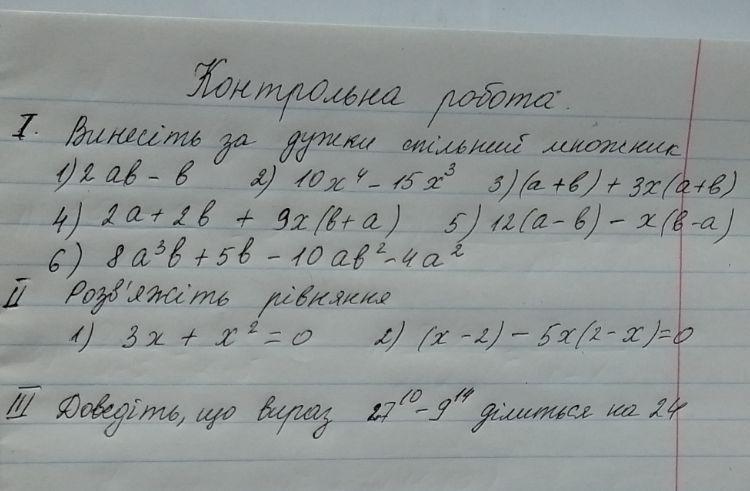 Контрольна робота.
I. Винесіть за дужки спільний множник
1) 2ab - b 2) 10x⁴ - 15x³ 3) (a+b) + 3x(a+b)
4) 2a + 2b + 9x(b+a) 5) 12(a-b) - x(b-a)
6) 8a³b + 5b - 10ab² - 4a²
II Розв'яжіть рівняння
1) 3x + x² = 0 2) (x-2) - 5x(2-x)=0
III Доведіть, що вираз 27¹⁰ - 9¹⁴ ділиться на 24